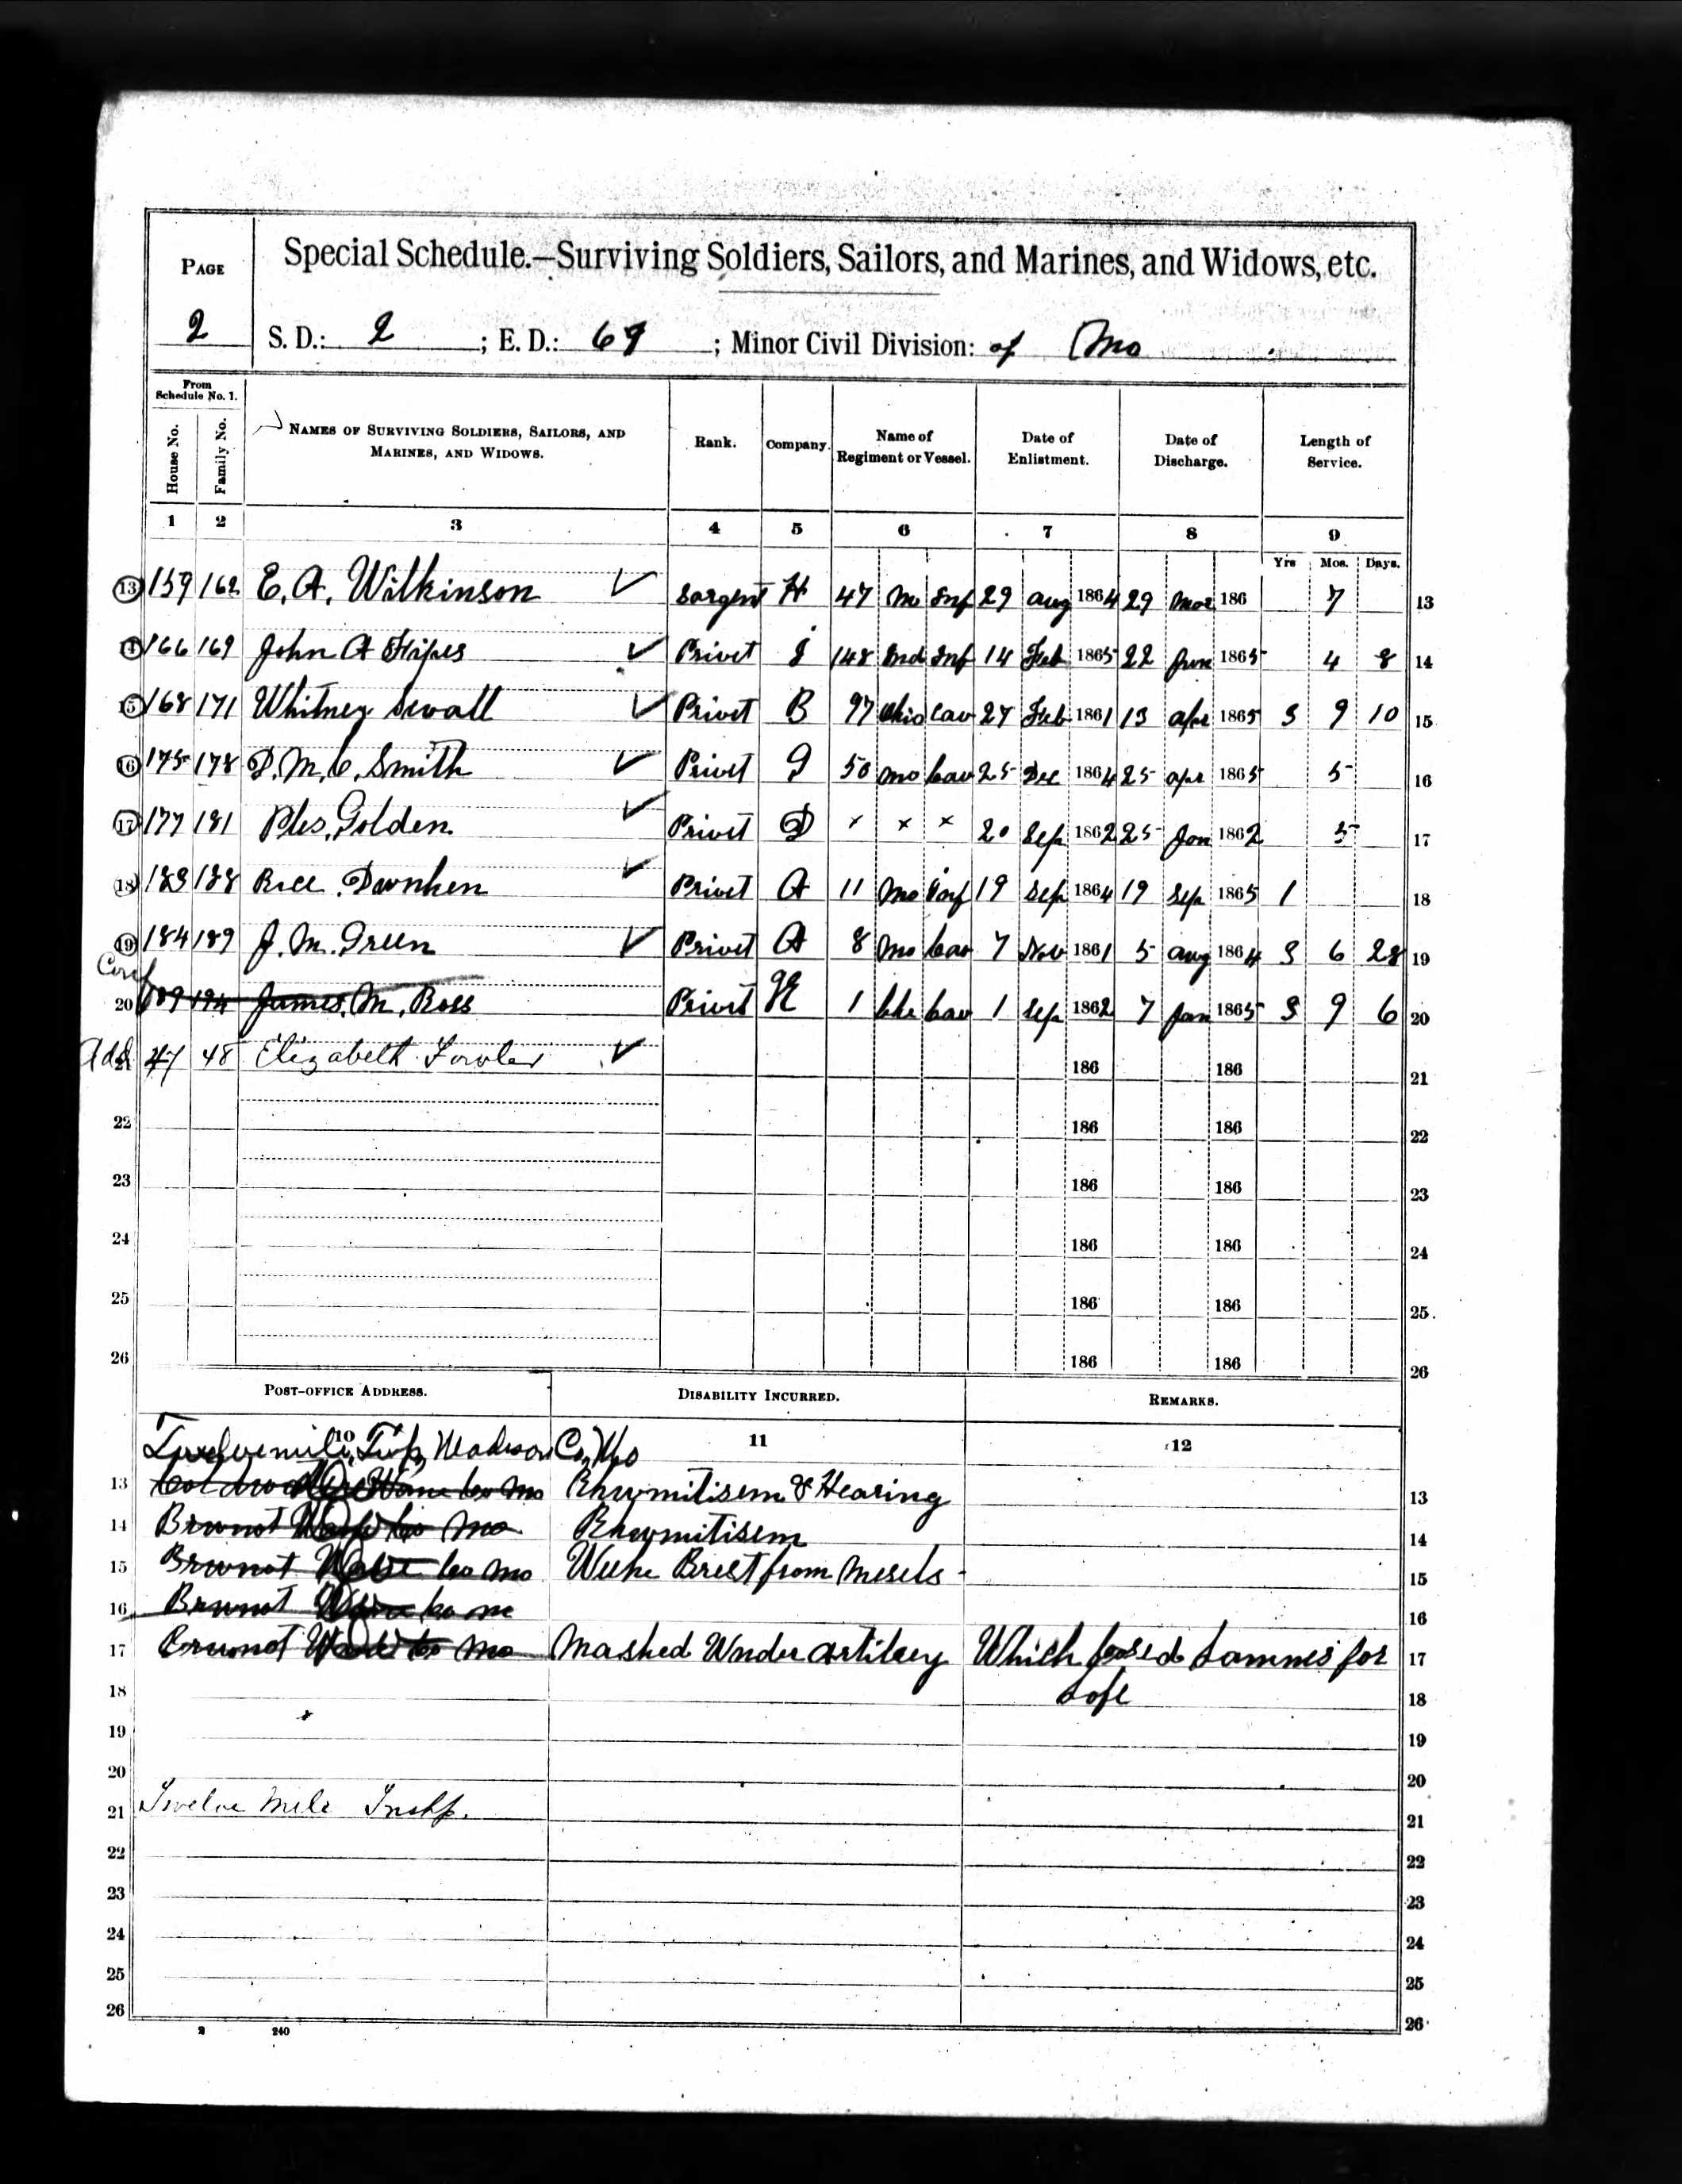 PAGE
2
Special Schedule.—Surviving Soldiers, Sailors, and Marines, and Widows, etc.
S. D.: 2 ; E. D.: 69 ; Minor Civil Division: of Mo
From Schedule No. 1.
House No. Family No. NAMES OF SURVIVING SOLDIERS, SAILORS, AND MARINES, AND WIDOWS. Rank. Company. Name of Regiment or Vessel. Date of Enlistment. Date of Discharge. Length of Service.
1 2 3 4 5 6 7 8 9
Yrs Mos. Days.
13 159 162 E. A. Wilkinson Sargent H 47 Mo Inf 29 aug 1864 29 Mar 186 7 13
14 166 169 John A Stipes Privet I 148 Ind Inf 14 Feb 1865 22 Jun 1865 4 8 14
15 168 171 Whitney Swall Privet B 97 Ohio Cav 27 Feb 1861 13 apr 1865 3 9 10 15
16 175 178 D. M. C. Smith Privet G 50 Mo Cav 25 Dec 1864 25 apr 1865 5 16
17 177 181 Ples. Golden Privet D x x x 20 Sep 1862 25 Jan 1862 5 17
18 183 188 Rice Privet A 11 Mo Inf 19 Sep 1864 19 Sep 1865 1 18
19 184 189 J. M. Green Privet A 8 Mo Cav 7 Nov 1861 5 aug 1864 3 6 28 19
Conf
20 189 194 James. M. Ross Privet 1 Cav 1 Sep 1862 7 Jan 1865 3 9 6 20
Add 21 47 48 Elizabeth Fowler 186 186 21
22 186 186 22
23 186 186 23
24 186 186 24
25 186 186 25
26 186 186 26
POST-OFFICE ADDRESS. DISABILITY INCURRED. REMARKS.
10 11 12
Twelvemile, Twp, Madison Co, Mo
13 Coldwater Wane Co Mo Rhumitisem & Hearing 13
14 Brunot Co Mo Rhumitisem 14
15 Brunot Co Mo Weeke Brest from Mesels 15
16 Brunot Co Mo 16
17 Brunot Co Mo Mashed Under artilery Which for 17
18 Life 18
19 19
20 20
21 Twelve Mile Twshp. 21
22 22
23 23
24 24
25 25
26 26
2 240